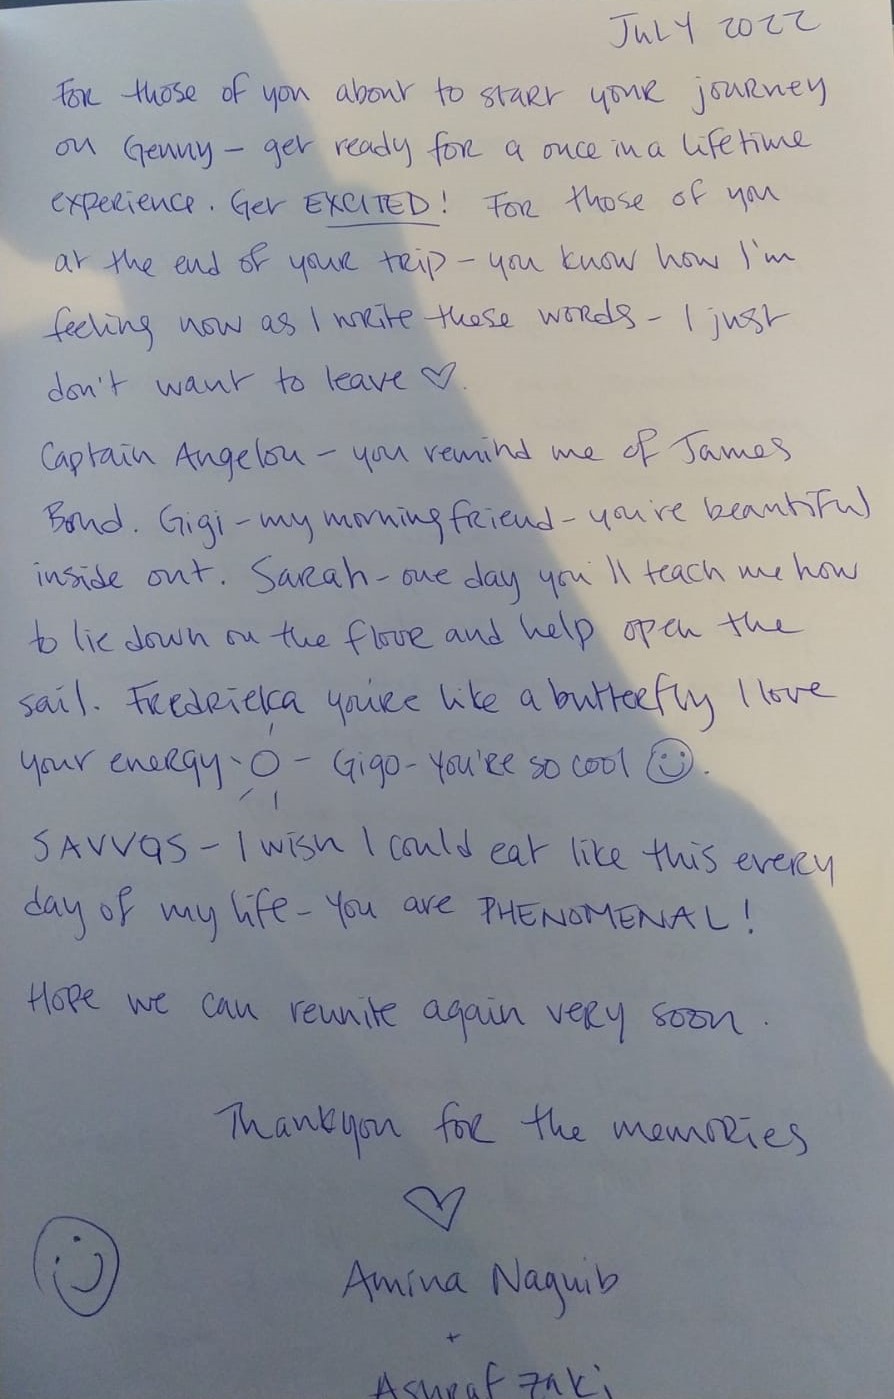 JULY 2022
For those of you about to start your journey
on Genny - get ready for a once in a lifetime
experience. Get EXCITED! For those of you
at the end of your trip - you know how I'm
feeling now as I write these words - I just
don't want to leave ♡.
Captain Angelou - you remind me of James
Bond. Gigi - my morning friend - you're beautiful
inside out. Sarah - one day you'll teach me how
to lie down on the floor and help open the
sail. Fredrieka you're like a butterfly I love
your energy - Gigo - you're so cool ☺.
SAVVAS - I wish I could eat like this every
day of my life - You are PHENOMENAL!
Hope we can reunite again very soon.
Thankyou for the memories
♡
Amina Naguib
+
Ashraf Zaki